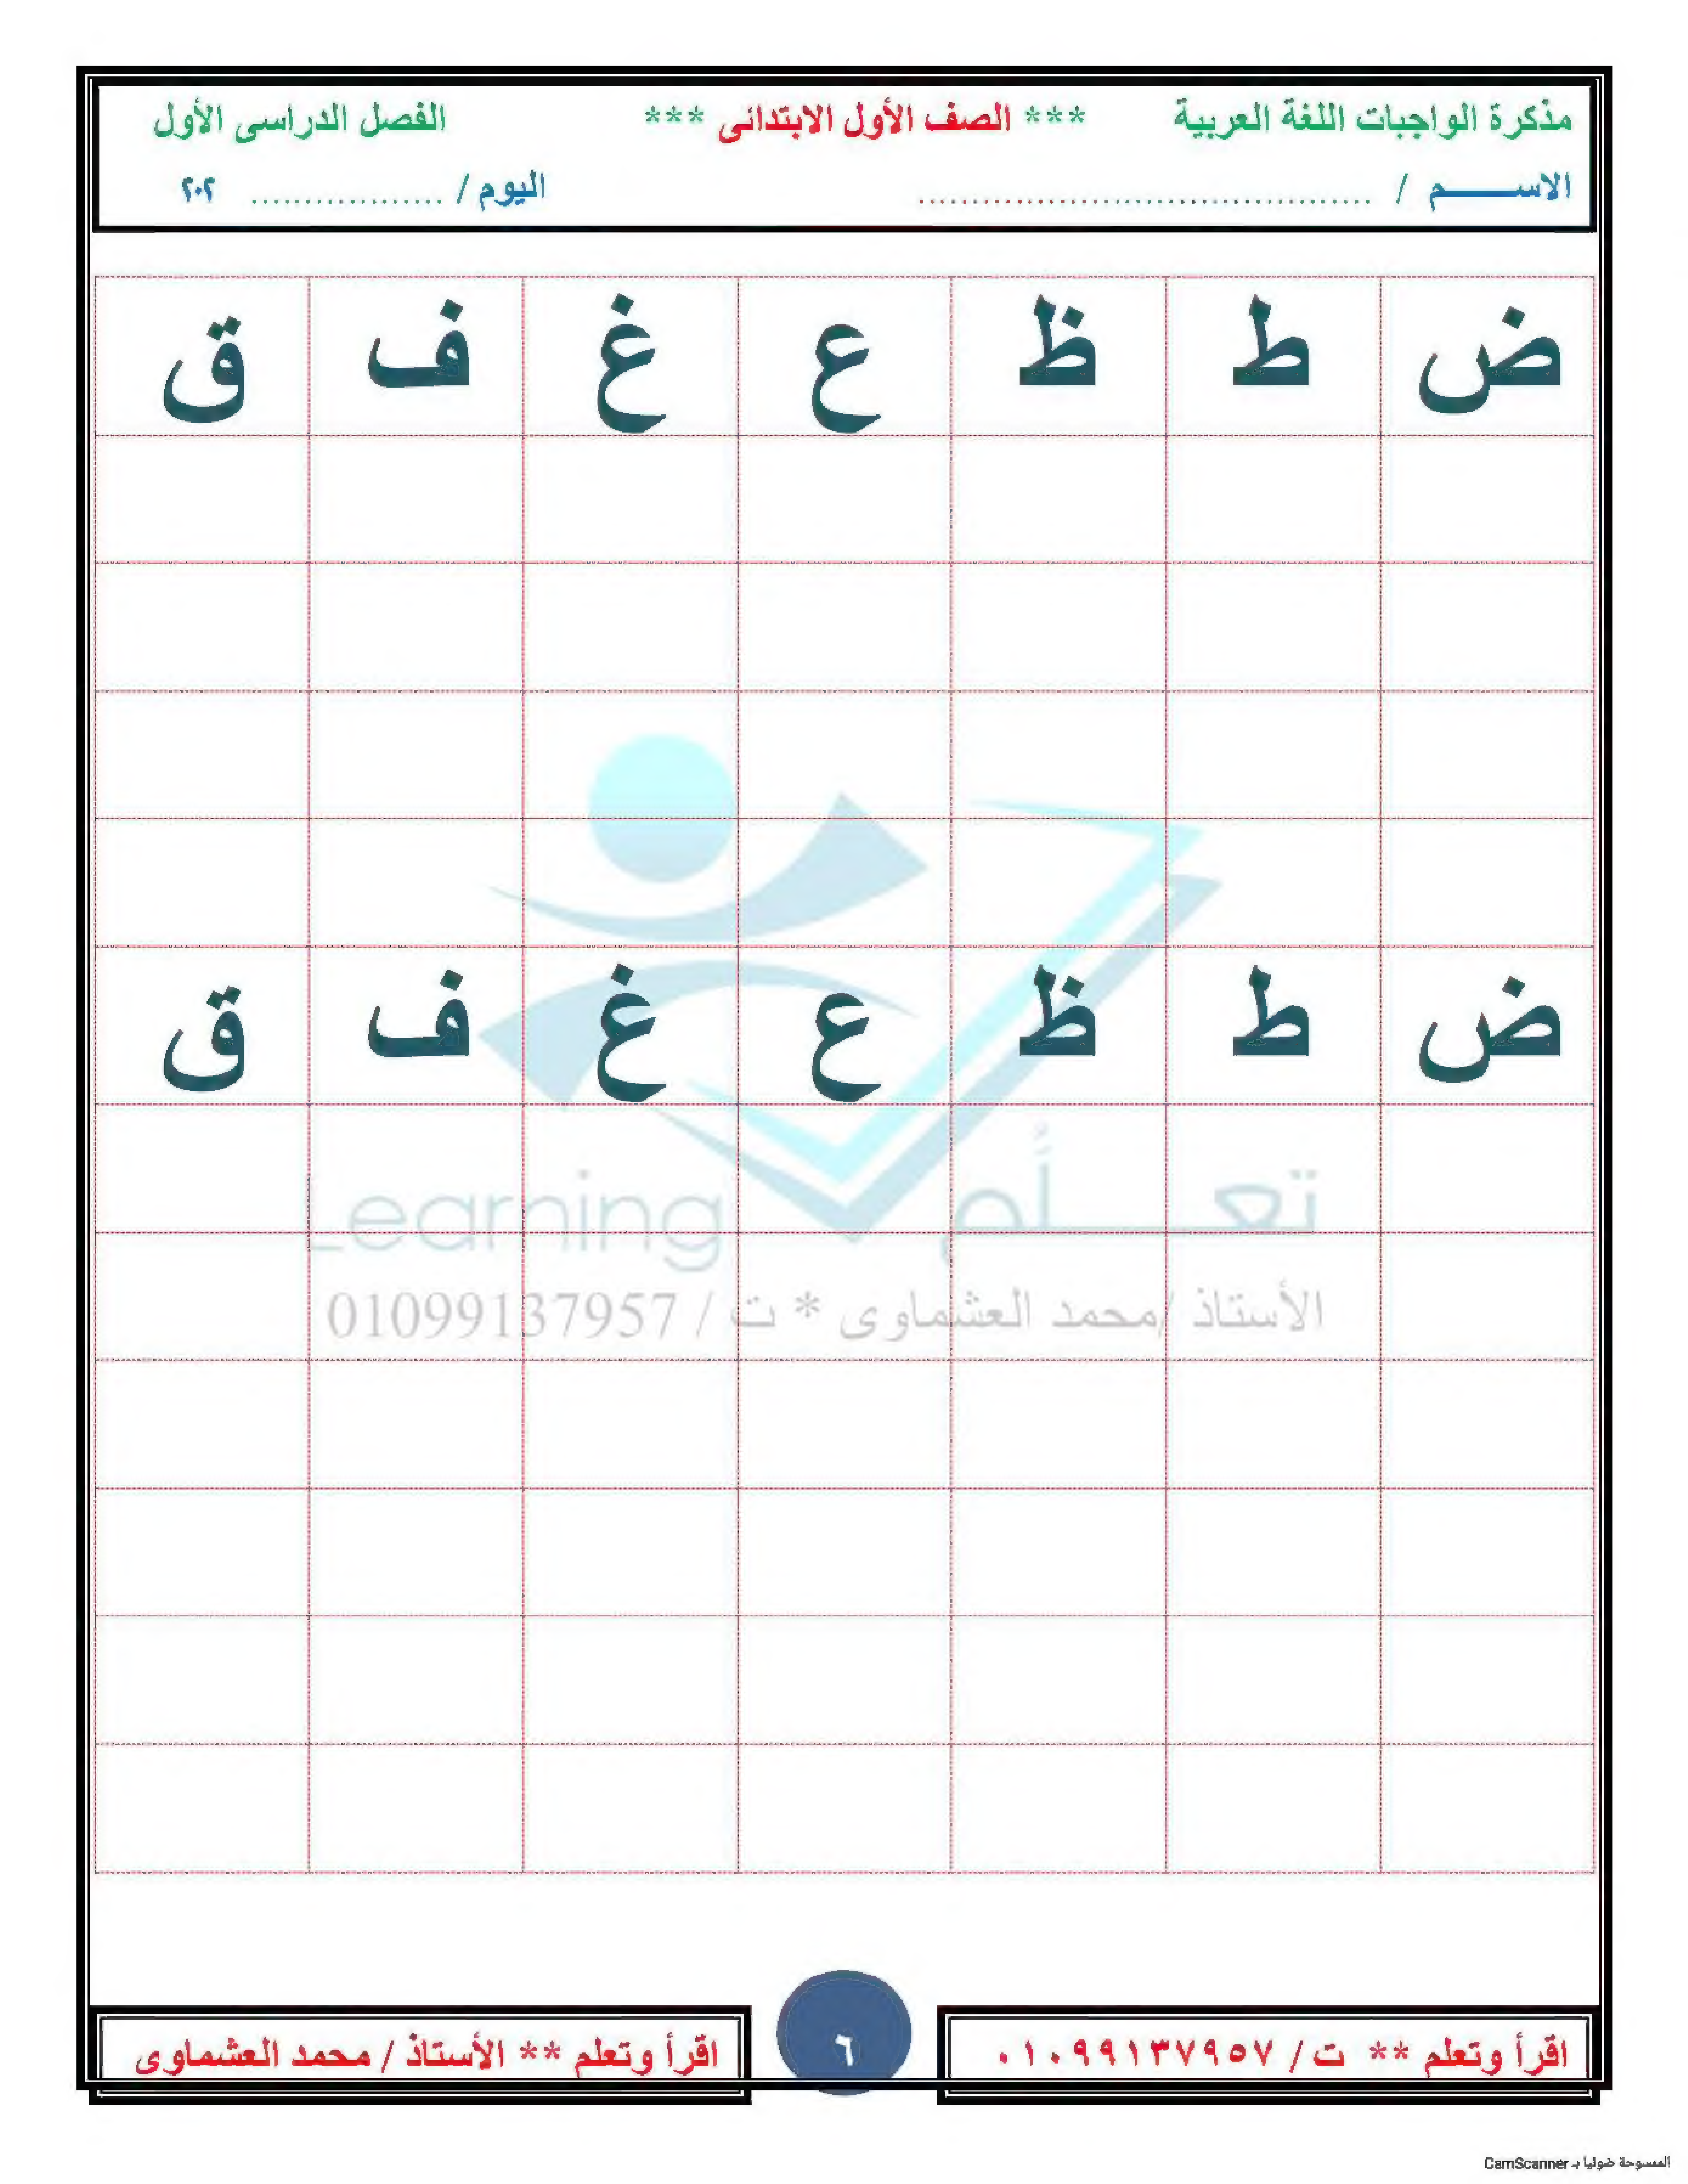 مذكرة الواجبات اللغة العربية *** الصف الأول الابتدائى *** الفصل الدراسى الأول
الاســـــم / ........................................ اليوم / .................. ٢٠٢
ض ط ظ ع غ ف ق
ض ط ظ ع غ ف ق
تعـــــلَّم Learning
الأستاذ /محمد العشماوى * ت / 01099137957
اقرأ وتعلم ** ت / ٠١٠٩٩١٣٧٩٥٧
٦
اقرأ وتعلم ** الأستاذ / محمد العشماوى
الممسوحة ضوئيا بـ CamScanner